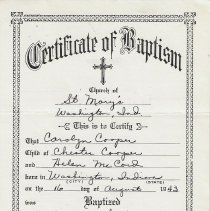 Certificate of Baptism
Church of
St. Mary's
Washington, Ind
This is to Certify
That Carolyn Cooper
Child of Chester Cooper
and Helen McCord
born in Washington, Indiana
(CITY) (STATE)
on the 16 day of August 1943
was
Baptized